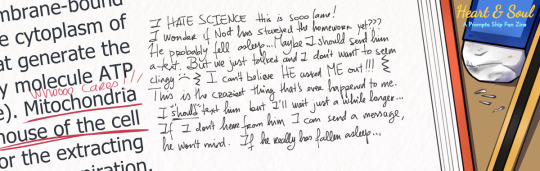 mbrane-bound
e cytoplasm of
at generate the
y molecule ATP
Whoooo Cares!!!
e). Mitochondria
house of the cell
or the extracting
piration.
I HATE SCIENCE this is sooo lame!
I wonder if Noct has started the homework yet???
He probably fell asleep... Maybe I should send him
a text. But we just talked and I don't want to seem
clingy I can't believe HE asked ME out!!!
This is the craziest thing that's ever happened to me.
I should text him but I'll wait just a while longer...
If I don't hear from him I can send a message,
he won't mind. If he really has fallen asleep...
Heart & Soul
A Promptis Ship Fan Zine